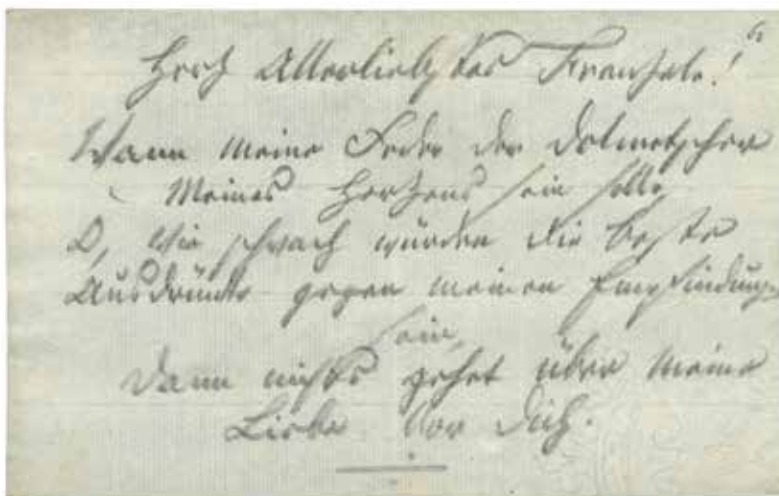 Hertz Allerliebstes Franzele!
Wann meine Feder der Dolmetscher
Meines Hertzens sein solle,
O, wie schwach würden die beste
Ausdrücke gegen meinen Empfindung
sein,
Dann nichts gehet über meine
Liebe vor Dich.